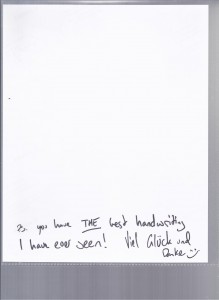 Ps. you have THE best handwriting
I have ever seen! Viel Glück und
Danke :)